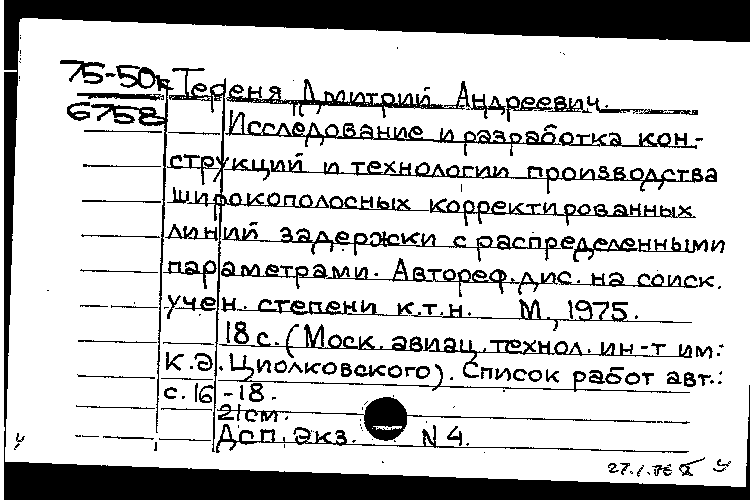 75-50к Тереня Дмитрий Андреевич.
6758
Исследование и разработка кон-
струкций и технологии производства
широкополосных корректированных
линий задержки с распределенными
параметрами. Автореф. дис. на соиск.
учен. степени к.т.н. М., 1975.
18 с. (Моск. авиац. технол. ин-т им.
К.Э. Циолковского). Список работ авт.:
с. 16-18.
21 см.
Дсп. экз. N 4.
27.1.76